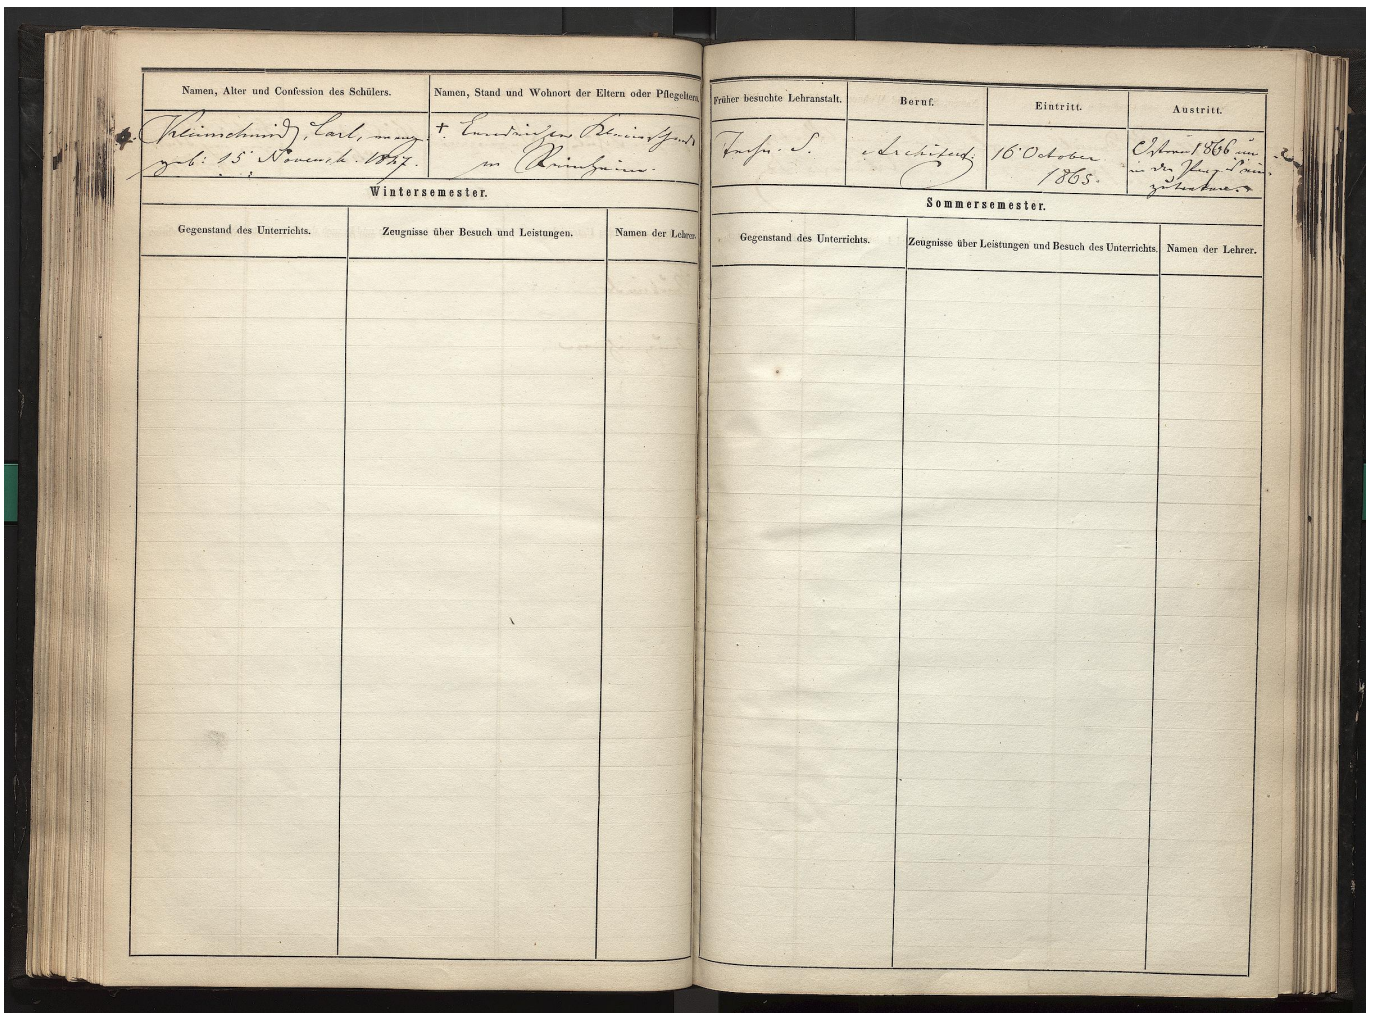 Namen, Alter und Confession des Schülers.
Namen, Stand und Wohnort der Eltern oder Pflegeltern.
Kleinschmidt, Carl, evang.
geb: 15 Novemb. 1847.
†
in Reinheim.
Wintersemester.
Gegenstand des Unterrichts.
Zeugnisse über Besuch und Leistungen.
Namen der Lehrer.
Früher besuchte Lehranstalt.
Beruf.
Eintritt.
Austritt.
Techn. S.
Architect.
16 October
1865.
Ostern 1866 um
in die Praxis ein-
zutreten.
Sommersemester.
Gegenstand des Unterrichts.
Zeugnisse über Leistungen und Besuch des Unterrichts.
Namen der Lehrer.